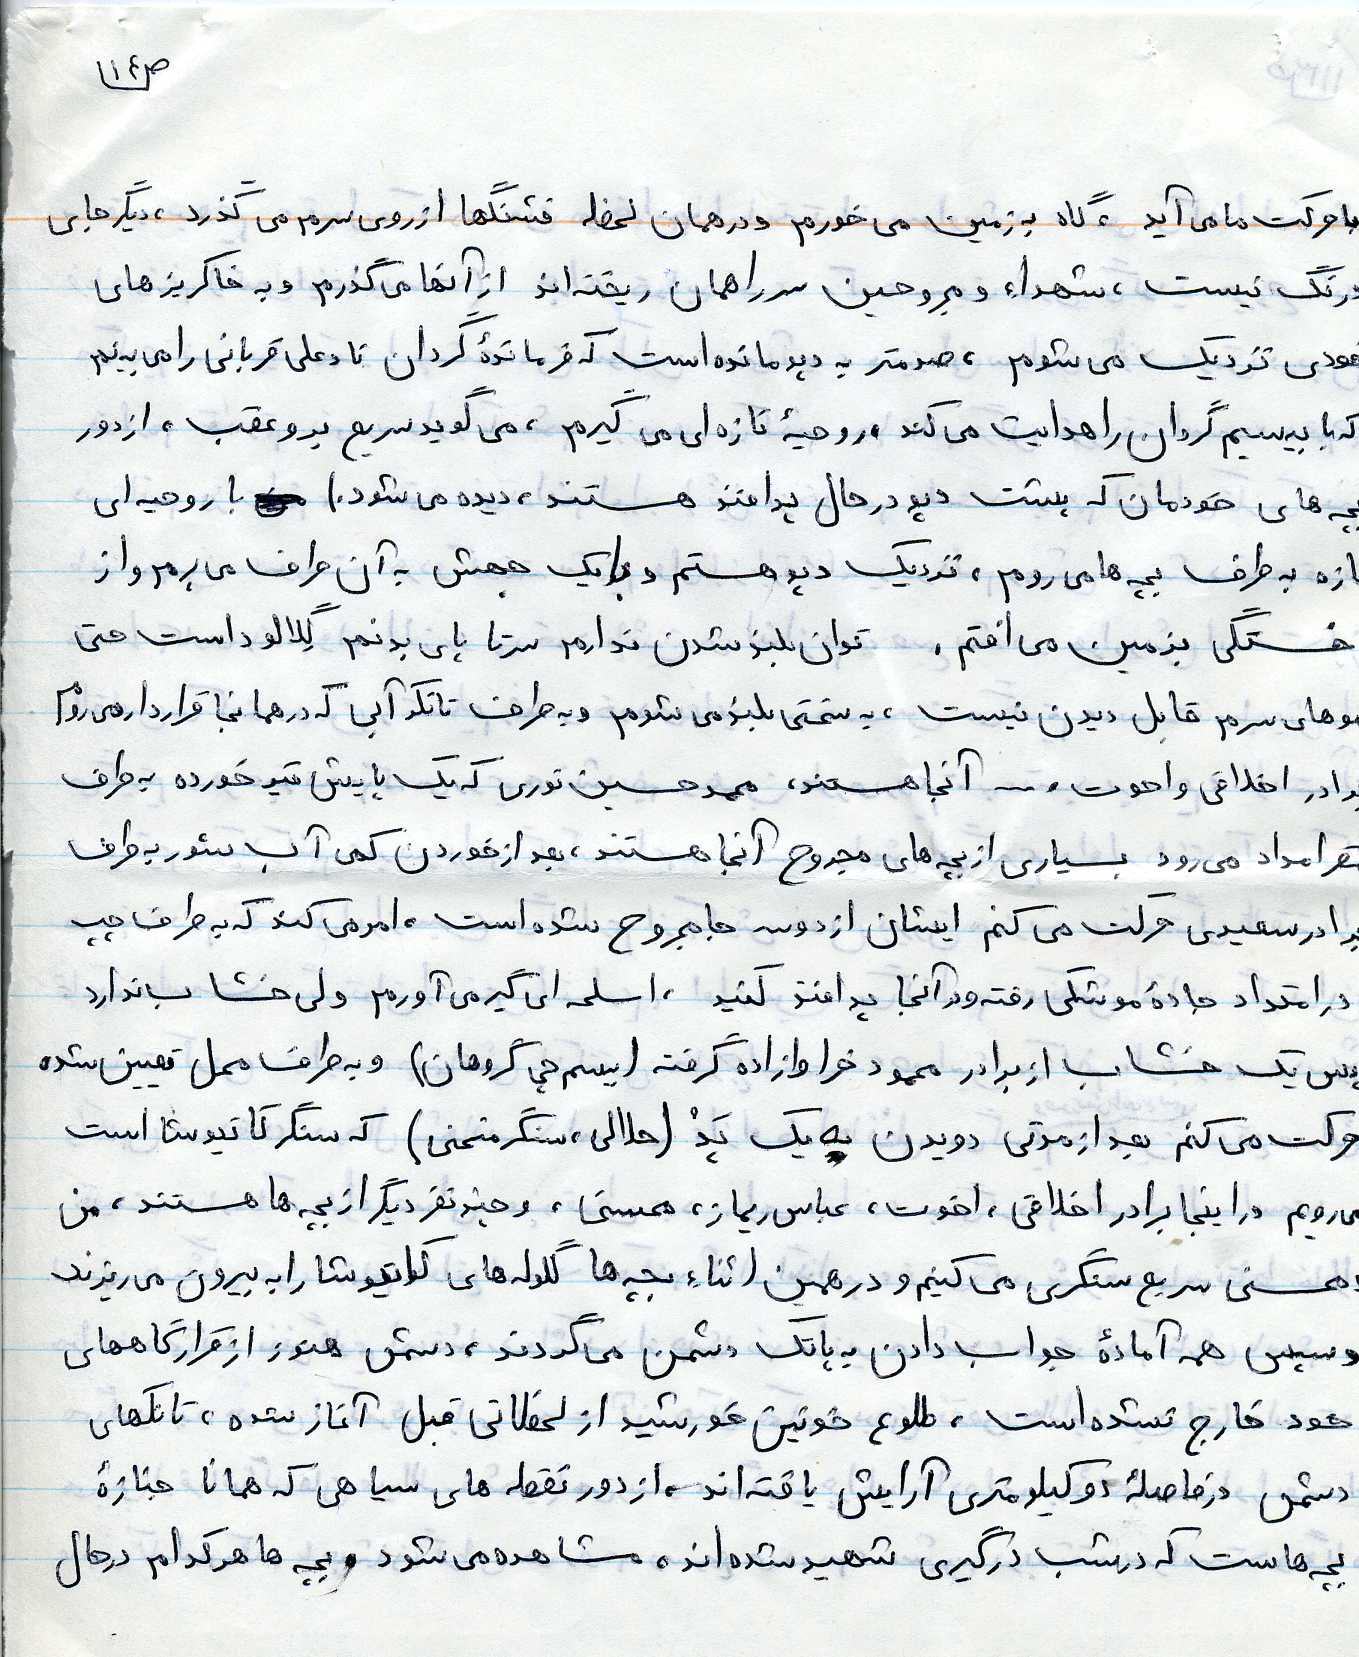 ص۱۴
با حرکت ما می آید ، گاه به زمین می خورم و در همان لحظه فشنگها از روی سرم می گذرد ، دیگر جای
درنگ نیست ، شهداء و مجروحین سر راهمان ریخته اند از آنها می گذرم و به خاکریزهای
خودی نزدیک می شوم ، صد متر به دپو مانده است که فرماندهٔ گردان نادعلی قربانی را می بینم
که با بیسیم گردان را هدایت می کند ، روحیهٔ تازه ای می گیرم ، می گوید سریع برو عقب ، از دور
بچه های خودمان که پشت دپو در حال پدافند هستند ، دیده می شود .) با روحیه ای
تازه به طرف بچه ها می روم ، نزدیک دپو هستم و با یک جهش به آن طرف می پرم و از
خستگی بزمین می افتم . توان بلند شدن ندارم سرتا پای بدنم گِلالود است حتی
موهای سرم قابل دیدن نیست ، به سختی بلند می شوم و به طرف تانکر آبی که در همانجا قرار دارد می روم
برادر اخلاقی و اخوت ، ... آنجا هستند ، محمد حسین نوری که یک پایش تیر خورده به طرف
مقر امداد می رود بسیاری از بچه های مجروح آنجا هستند ، بعد از خوردن کمی آب شور به طرف
برادر سعیدی حرکت می کنم ایشان از دو سه جا مجروح شده است ، امر می کند که به طرف چپ
در امتداد جادهٔ موشکی رفته و در آنجا پدافند کنید ، اسلحه ای گیر می آورم ولی خشاب ندارد
پس یک خشاب از برادر محمود خرازاده گرفته (بیسم چی گروهان) و به طرف محل تعیین شده
حرکت می کنم بعد از مدتی دویدن به یک پَدْ (هلالی ، سنگر منحنی) که سنگر کاتیوشا است
می رویم در اینجا برادر اخلاقی ، اخوت ، عباس ریماز ، محسنی ، و چند نفر دیگر از بچه ها هستند ، من
و محسنی سریع سنگری می کنیم و در همین اثناء بچه ها گلوله های کاتیوشا را به بیرون می ریزند
و سپس همه آمادهٔ جواب دادن به پاتک دشمن می گردند ، دشمن هنوز از قرارگاههای
خود خارج نشده است ، طلوع خونین خورشید از لحظاتی قبل آغاز شده ، تانکهای
دشمن در فاصلهٔ دو کیلومتری آرایش یافته اند ، از دور نقطه های سیاهی که همانا جنازهٔ
بچه هاست که در شب درگیری شهید شده اند ، مشاهده می شود و بچه ها هر کدام در حال